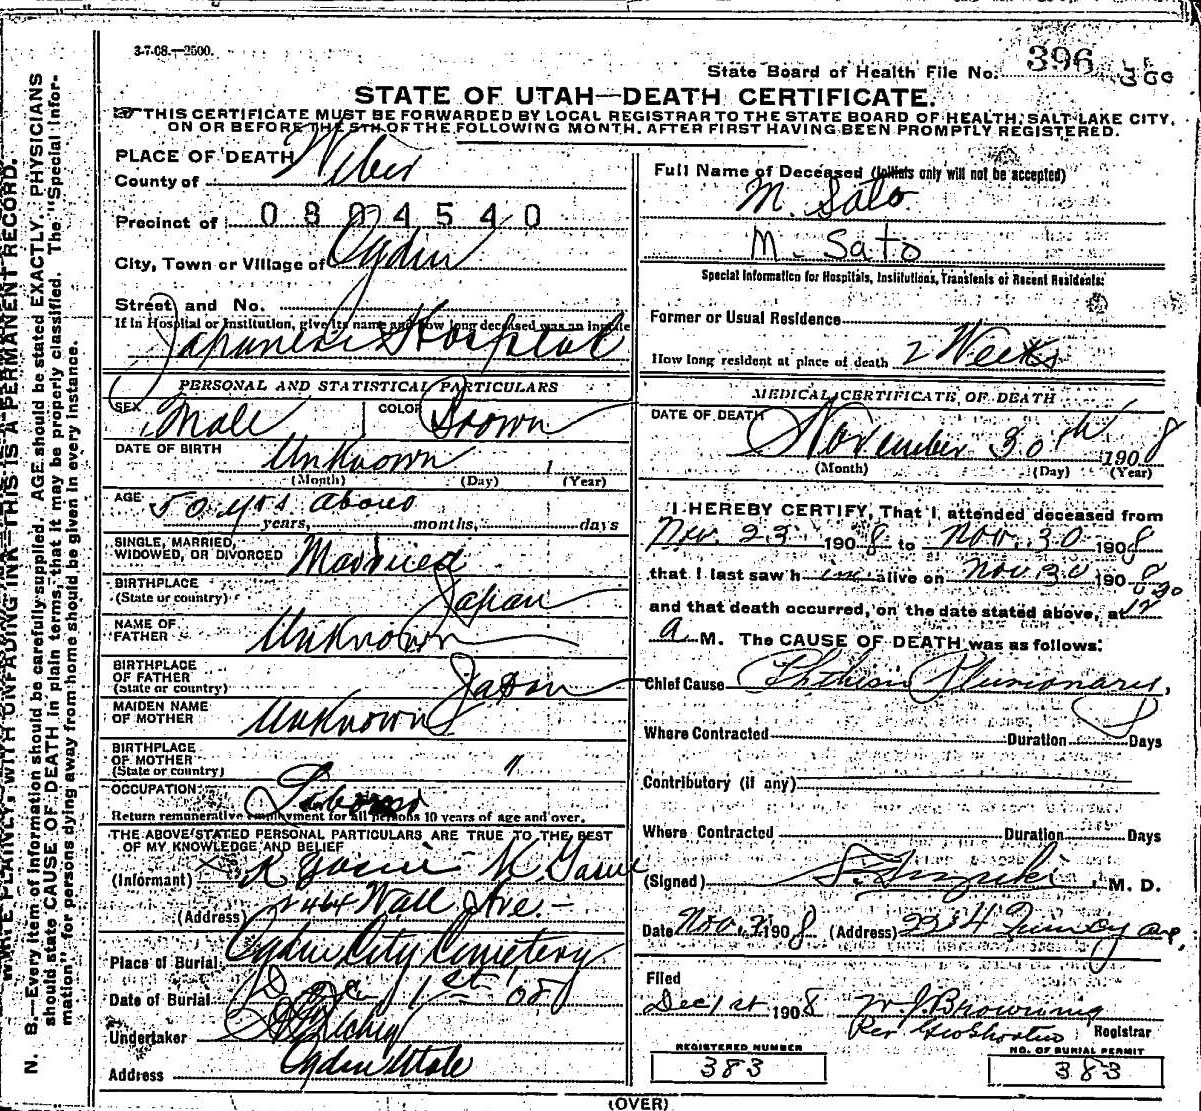 3-7-08.—2500.
State Board of Health File No. 396 300
STATE OF UTAH—DEATH CERTIFICATE.
THIS CERTIFICATE MUST BE FORWARDED BY LOCAL REGISTRAR TO THE STATE BOARD OF HEALTH, SALT LAKE CITY,
ON OR BEFORE THE 5TH OF THE FOLLOWING MONTH, AFTER FIRST HAVING BEEN PROMPTLY REGISTERED.
PLACE OF DEATH
County of Weber
Precinct of 0804540
City, Town or Village of Ogden
Street and No.
If in Hospital or Institution, give its name and how long deceased was an inmate
Japanese Hospital
PERSONAL AND STATISTICAL PARTICULARS
SEX Male COLOR Brown
DATE OF BIRTH Unknown
(Month) (Day) (Year)
AGE 50 yrs about
years, months, days
SINGLE, MARRIED,
WIDOWED, OR DIVORCED Married
BIRTHPLACE
(State or country) Japan
NAME OF
FATHER Unknown
BIRTHPLACE
OF FATHER
(State or country) Japan
MAIDEN NAME
OF MOTHER Unknown
BIRTHPLACE
OF MOTHER
(State or country) "
OCCUPATION
Return remunerative employment for all persons 10 years of age and over.
THE ABOVE STATED PERSONAL PARTICULARS ARE TRUE TO THE BEST
OF MY KNOWLEDGE AND BELIEF
(Informant)
(Address) 2464 Wall Ave.
Place of Burial Ogden City Cemetery
Date of Burial Dec 1st '08
Undertaker
Address Ogden Utah
Full Name of Deceased (Initials only will not be accepted)
M. Sato
M. Sato
Special Information for Hospitals, Institutions, Transients or Recent Residents:
Former or Usual Residence
How long resident at place of death 2 Weeks
MEDICAL CERTIFICATE OF DEATH
DATE OF DEATH
November 30th 1908
(Month) (Day) (Year)
I HEREBY CERTIFY, That I attended deceased from
Nov. 23 1908 to Nov. 30 1908
that I last saw him alive on Nov 30 1908
and that death occurred, on the date stated above, at 12 30
a M. The CAUSE OF DEATH was as follows:
Chief Cause Phthisis Plumonary,
Where Contracted Duration Days
Contributory (if any)
Where Contracted Duration Days
(Signed) S. Suzuki, M. D.
Date Nov. 1908 (Address) 2234 Quincy Ave,
Filed
Dec 1st 1908 W. J. Browning
Per Registrar
REGISTERED NUMBER
383
NO. OF BURIAL PERMIT
383
(OVER)
WRITE PLAINLY, WITH UNFADING INK—THIS IS A PERMANENT RECORD.
N. B.—Every item of information should be carefully supplied. AGE should be stated EXACTLY. PHYSICIANS
should state CAUSE OF DEATH in plain terms, that it may be properly classified. The "Special Infor-
mation" for persons dying away from home should be given in every instance.